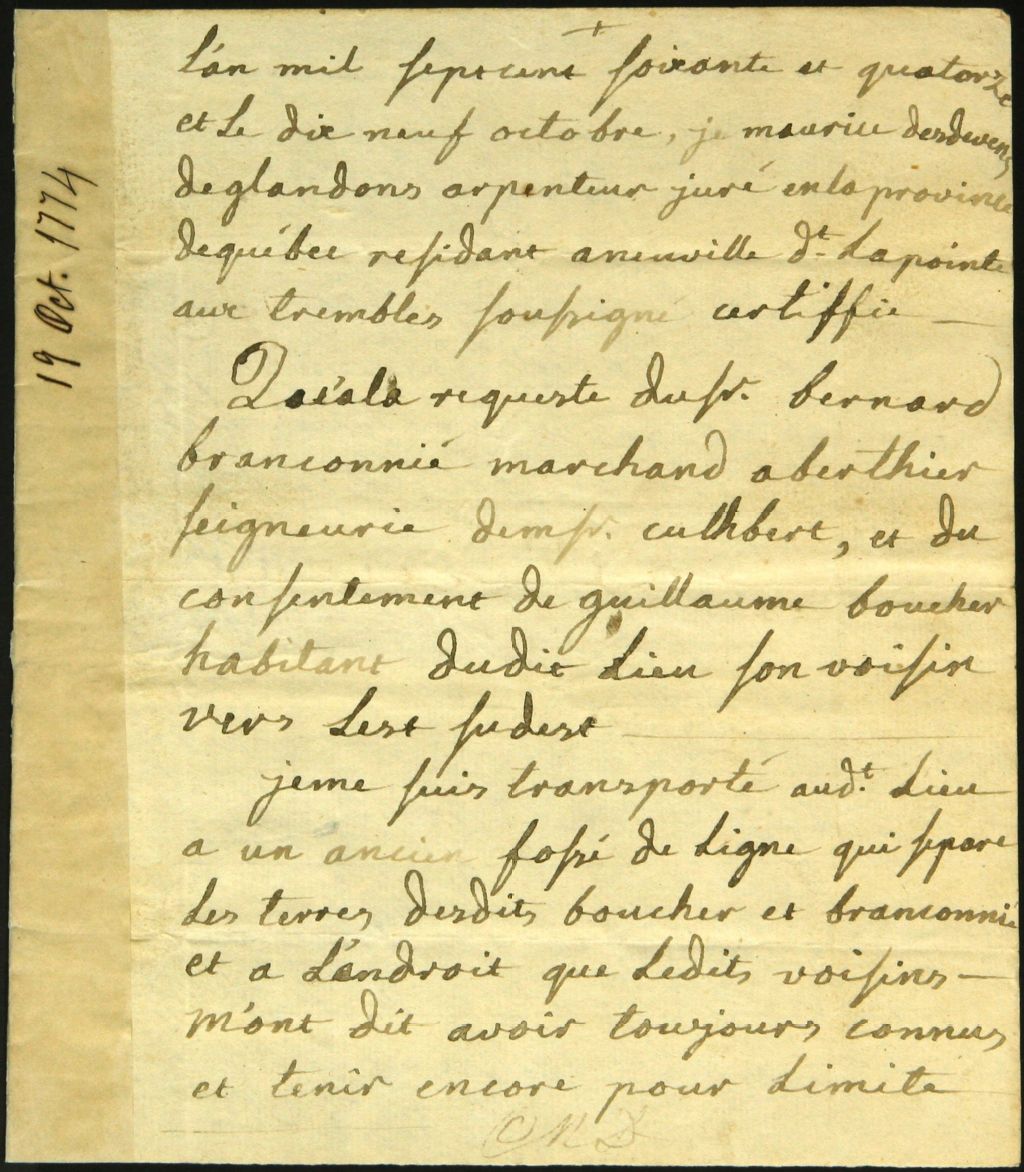 19 Oct. 1774
L'an mil sept cent soixante et quatorze
et Le dix neuf octobre, je maurice desdevens
deglandons arpenteur juré enla province
dequébec residant aneuville dt Lapointe
aux trembles soussigné certiffie —
Qu'ala requeste dusr. bernard
branconnié marchand aberthier
seigneurie demsr. cuthbert, et du
consentement de guillaume boucher
habitant dudit Lieu son voisin
vers Lest sudest
jeme suis transporté audt. Lieu
a un ancien fossé de Ligne qui separe
Les terres desdits boucher et branconnié
et a L'endroit que Ledits voisins —
m'ont dit avoir tousjours connus
et tenir encore pour Limite
MD